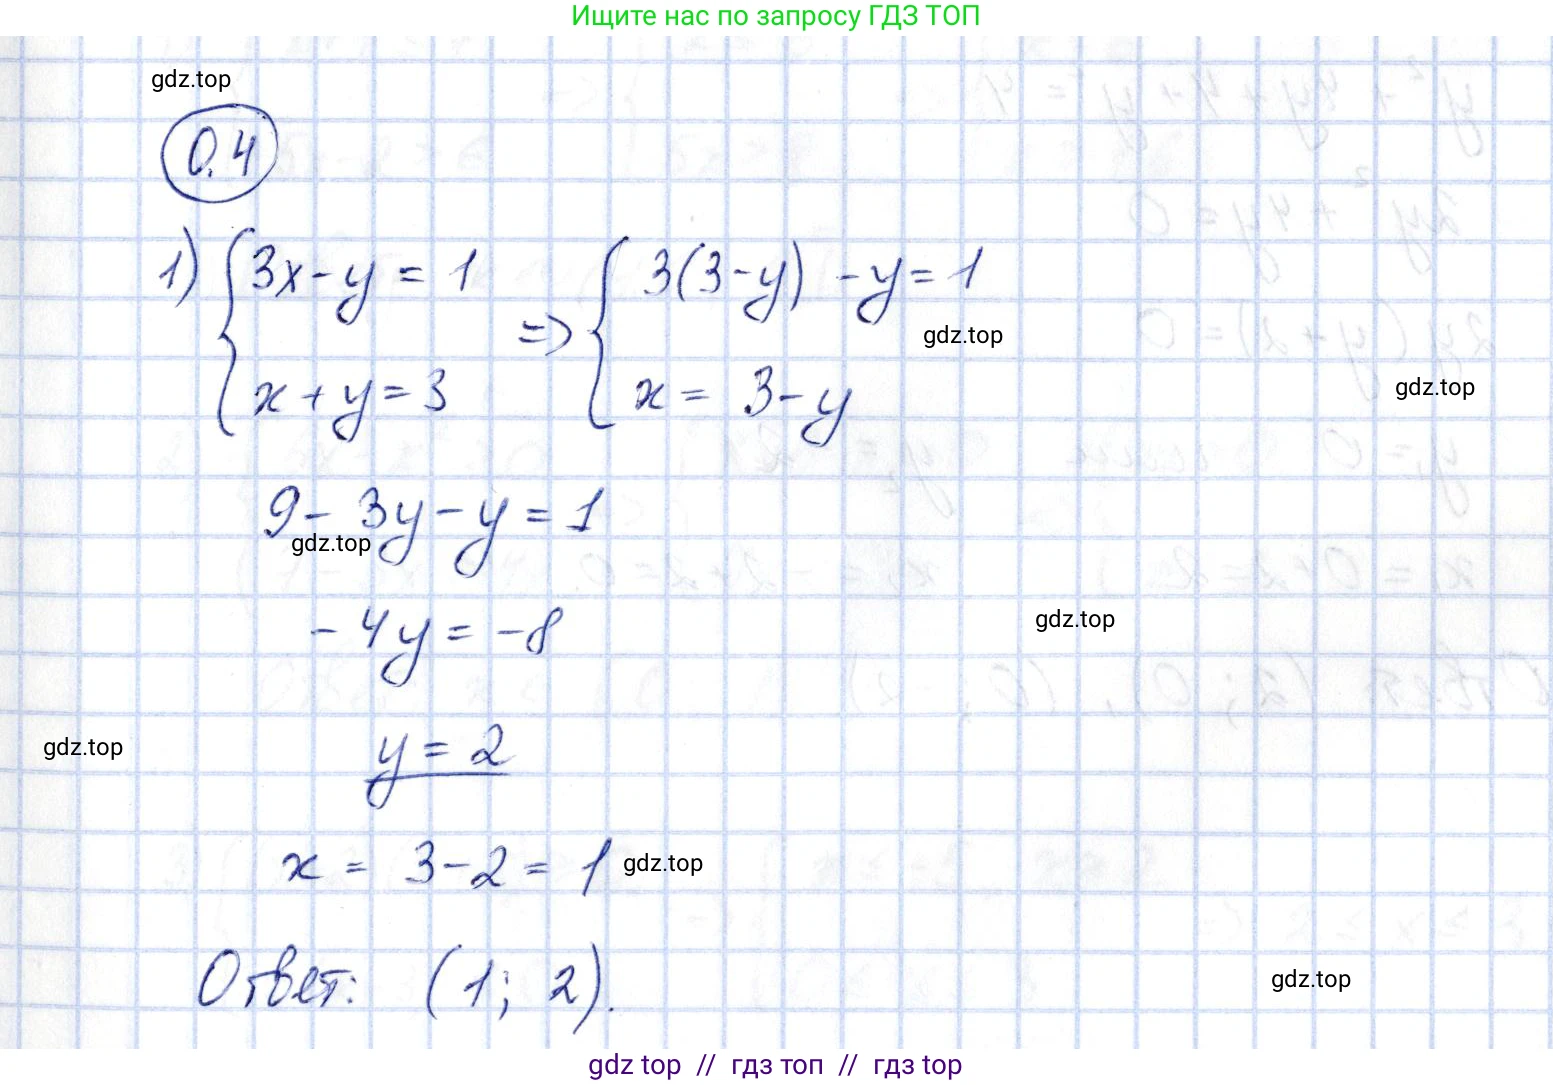 Ищите нас по запросу ГДЗ ТОП
gdz.top
0.4
1) { 3x - y = 1 => { 3(3 - y) - y = 1
gdz.top
x + y = 3 x = 3 - y
gdz.top
9 - 3y - y = 1
gdz.top
- 4y = -8
gdz.top
y = 2
gdz.top
x = 3 - 2 = 1
gdz.top
Ответ: (1; 2).
gdz.top
gdz top // гдз топ // gdz top